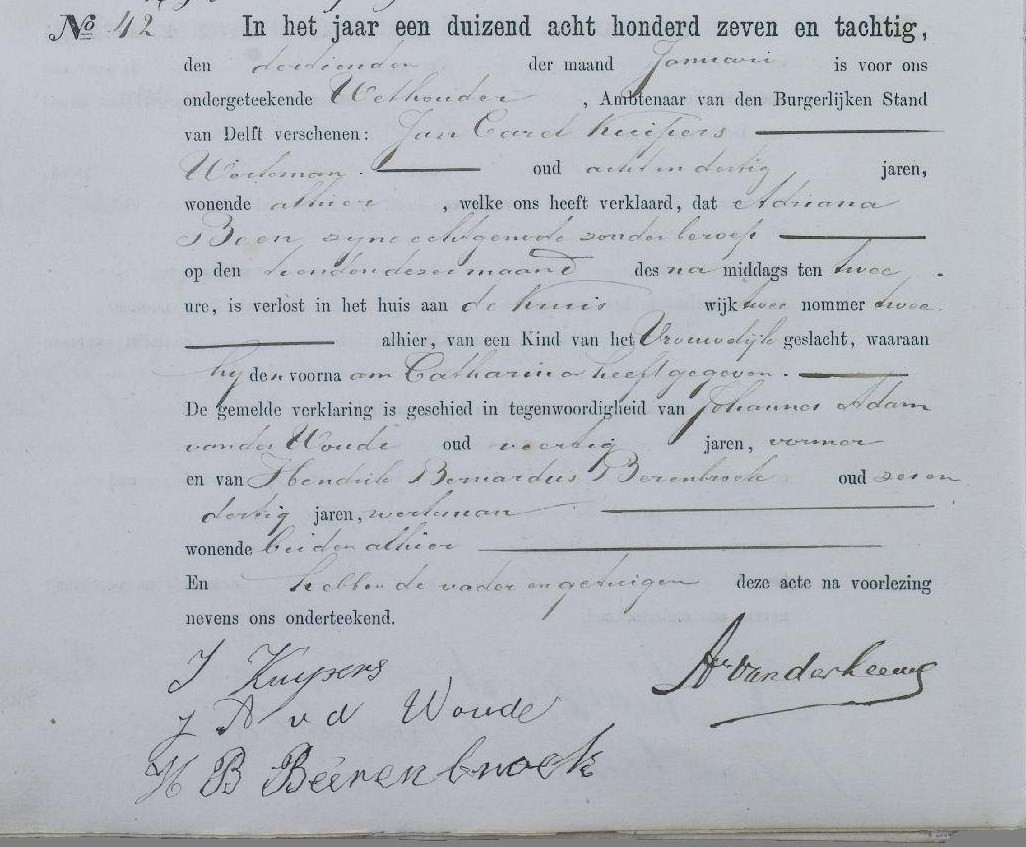 No 42 In het jaar een duizend acht honderd zeven en tachtig,
den dertienden der maand Januari is voor ons
ondergeteekende Wethouder, Ambtenaar van den Burgerlijken Stand
van Delft verschenen: Jan Carel Kuijpers
Werkman. oud acht en dertig jaren,
wonende alhier, welke ons heeft verklaard, dat Adriana
Been, zijne echtgenoote zonder beroep
op den dezer maand des na middags ten twee
ure, is verlost in het huis aan de wijk twee nommer twee
alhier, van een Kind van het Vrouwelijk geslacht, waaraan
hij den voornaam Catharina heeft gegeven.
De gemelde verklaring is geschied in tegenwoordigheid van Johannes Adam
van der Woude oud veertig jaren, vormer
en van Hendrik Bernardus Berenbroek oud zes en
dertig jaren, werkman
wonende beiden alhier
En hebben de vader en getuigen deze acte na voorlezing
nevens ons onderteekend.
J Kuypers
J A v d Woude
H B Béerenbroek